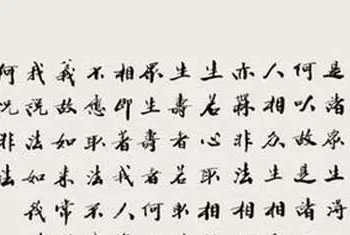 是諸眾生得
何以故是諸
人相众生相
亦無非法相
生若心取相
生壽者若取
眾生壽者何
相即著我人
不應取法不
義故如来常
我説法如筏
何况非法